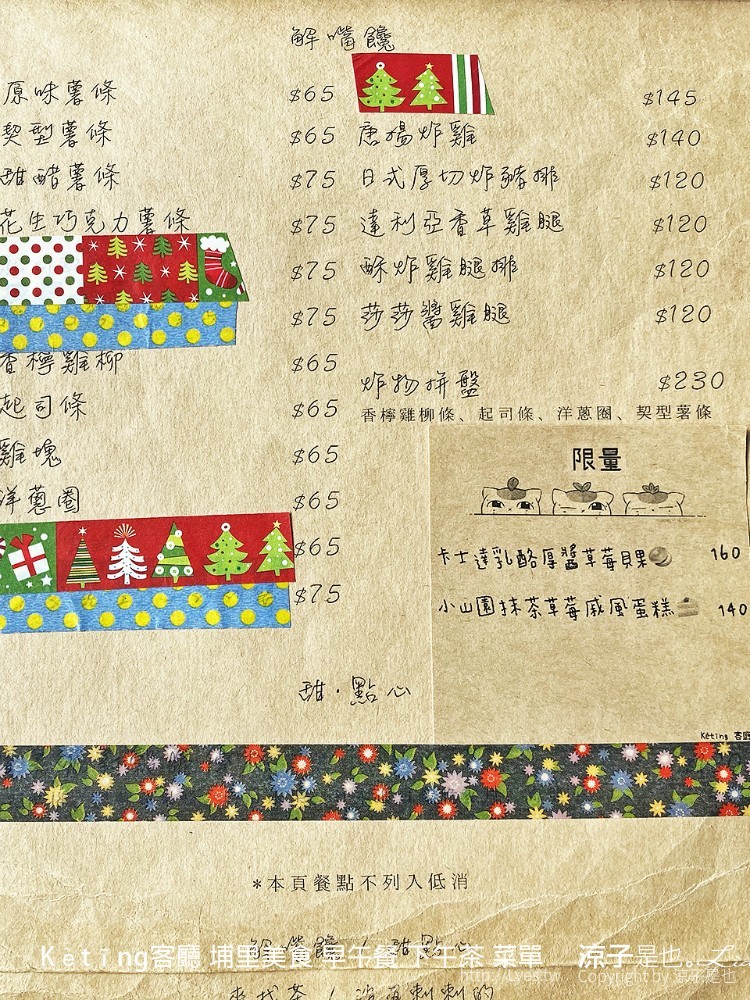 解嘴饞
原味薯條 $65
契型薯條 $65
甜醋薯條 $75
花生巧克力薯條 $75
$75
$75
香檸雞柳 $65
起司條 $65
雞塊 $65
洋蔥圈 $65
$65
$75
$145
唐揚炸雞 $140
日式厚切炸豬排 $120
達利亞香草雞腿 $120
酥炸雞腿排 $120
莎莎醬雞腿 $120
炸物拼盤 $230
香檸雞柳條、起司條、洋蔥圈、契型薯條
限量
卡士達乳酪厚醬草莓貝果 160
小山園抹茶草莓戚風蛋糕 140
Keting 客廳
甜‧點心
*本頁餐點不列入低消
解嘴饞 / 甜點心
Keting客廳 埔里美食 早午餐 下午茶 菜單
涼子是也
http://lyes.tw
Copyright by 涼子是也